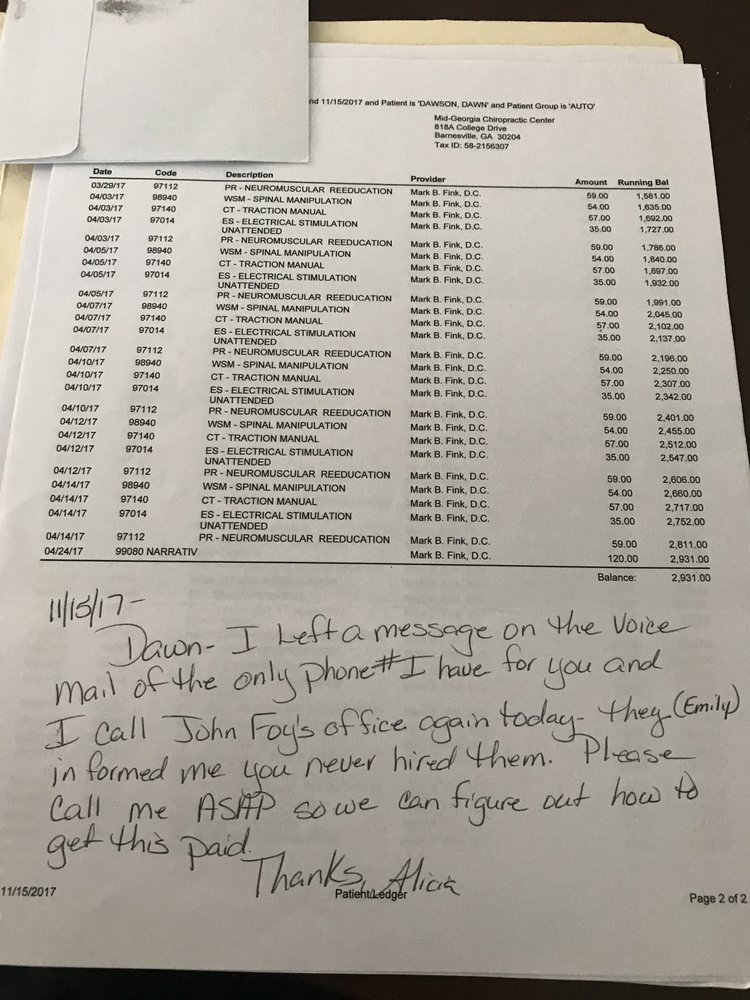 nd 11/15/2017 and Patient is 'DAWSON, DAWN' and Patient Group is 'AUTO'
Mid-Georgia Chiropractic Center
818A College Drive
Barnesville, GA 30204
Tax ID: 58-2156307
Date Code Description Provider Amount Running Bal
03/29/17 97112 PR - NEUROMUSCULAR REEDUCATION Mark B. Fink, D.C. 59.00 1,581.00
04/03/17 98940 WSM - SPINAL MANIPULATION Mark B. Fink, D.C. 54.00 1,635.00
04/03/17 97140 CT - TRACTION MANUAL Mark B. Fink, D.C. 57.00 1,692.00
04/03/17 97014 ES - ELECTRICAL STIMULATION Mark B. Fink, D.C. 35.00 1,727.00
UNATTENDED
04/03/17 97112 PR - NEUROMUSCULAR REEDUCATION Mark B. Fink, D.C. 59.00 1,786.00
04/05/17 98940 WSM - SPINAL MANIPULATION Mark B. Fink, D.C. 54.00 1,840.00
04/05/17 97140 CT - TRACTION MANUAL Mark B. Fink, D.C. 57.00 1,897.00
04/05/17 97014 ES - ELECTRICAL STIMULATION Mark B. Fink, D.C. 35.00 1,932.00
UNATTENDED
04/05/17 97112 PR - NEUROMUSCULAR REEDUCATION Mark B. Fink, D.C. 59.00 1,991.00
04/07/17 98940 WSM - SPINAL MANIPULATION Mark B. Fink, D.C. 54.00 2,045.00
04/07/17 97140 CT - TRACTION MANUAL Mark B. Fink, D.C. 57.00 2,102.00
04/07/17 97014 ES - ELECTRICAL STIMULATION Mark B. Fink, D.C. 35.00 2,137.00
UNATTENDED
04/07/17 97112 PR - NEUROMUSCULAR REEDUCATION Mark B. Fink, D.C. 59.00 2,196.00
04/10/17 98940 WSM - SPINAL MANIPULATION Mark B. Fink, D.C. 54.00 2,250.00
04/10/17 97140 CT - TRACTION MANUAL Mark B. Fink, D.C. 57.00 2,307.00
04/10/17 97014 ES - ELECTRICAL STIMULATION Mark B. Fink, D.C. 35.00 2,342.00
UNATTENDED
04/10/17 97112 PR - NEUROMUSCULAR REEDUCATION Mark B. Fink, D.C. 59.00 2,401.00
04/12/17 98940 WSM - SPINAL MANIPULATION Mark B. Fink, D.C. 54.00 2,455.00
04/12/17 97140 CT - TRACTION MANUAL Mark B. Fink, D.C. 57.00 2,512.00
04/12/17 97014 ES - ELECTRICAL STIMULATION Mark B. Fink, D.C. 35.00 2,547.00
UNATTENDED
04/12/17 97112 PR - NEUROMUSCULAR REEDUCATION Mark B. Fink, D.C. 59.00 2,606.00
04/14/17 98940 WSM - SPINAL MANIPULATION Mark B. Fink, D.C. 54.00 2,660.00
04/14/17 97140 CT - TRACTION MANUAL Mark B. Fink, D.C. 57.00 2,717.00
04/14/17 97014 ES - ELECTRICAL STIMULATION Mark B. Fink, D.C. 35.00 2,752.00
UNATTENDED
04/14/17 97112 PR - NEUROMUSCULAR REEDUCATION Mark B. Fink, D.C. 59.00 2,811.00
04/24/17 99080 NARRATIV Mark B. Fink, D.C. 120.00 2,931.00
Balance: 2,931.00
11/15/17 -
Dawn - I Left a message on the Voice
mail of the only phone# I have for you and
I call John Foy's office again today - they (Emily)
informed me you never hired them. Please
Call me ASAP so we can figure out how to
get this paid.
Thanks, Alicia
11/15/2017 Patient Ledger Page 2 of 2